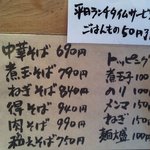 平日ランチタイムサービス
ごはんもの50円引
中華そば 690円
煮玉そば 790円
ねぎそば 840円
得そば 940円
肉そば 990円
和えそば 750円
トッピング
煮玉子 100
のり 100
メンマ 150
ねぎ 150
麺大盛 100